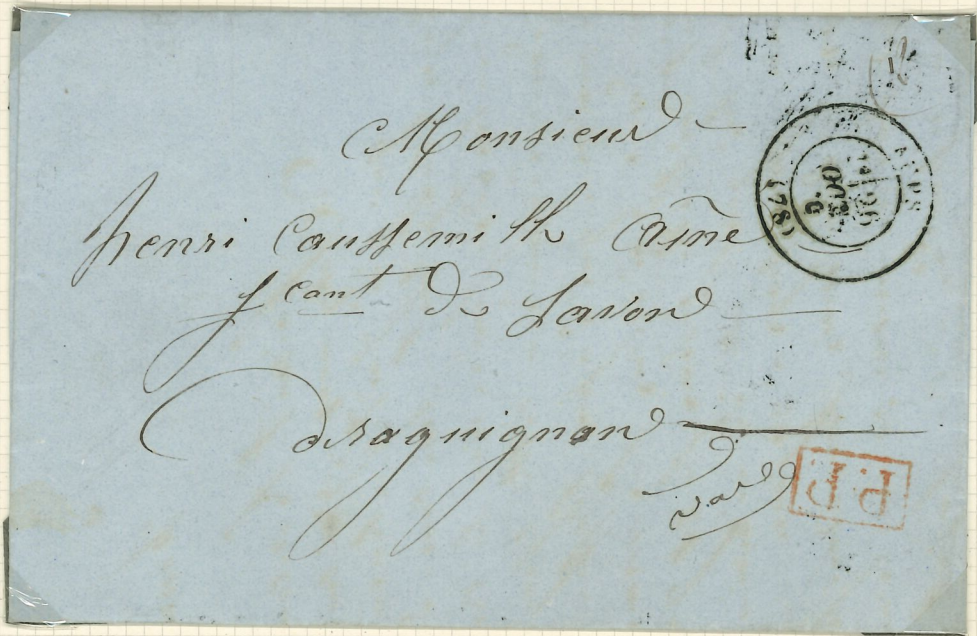 Monsieur
henri Caussemille Aîné
fcant de Savon
Draguignan
Var
AUPS
(78)
P.P.